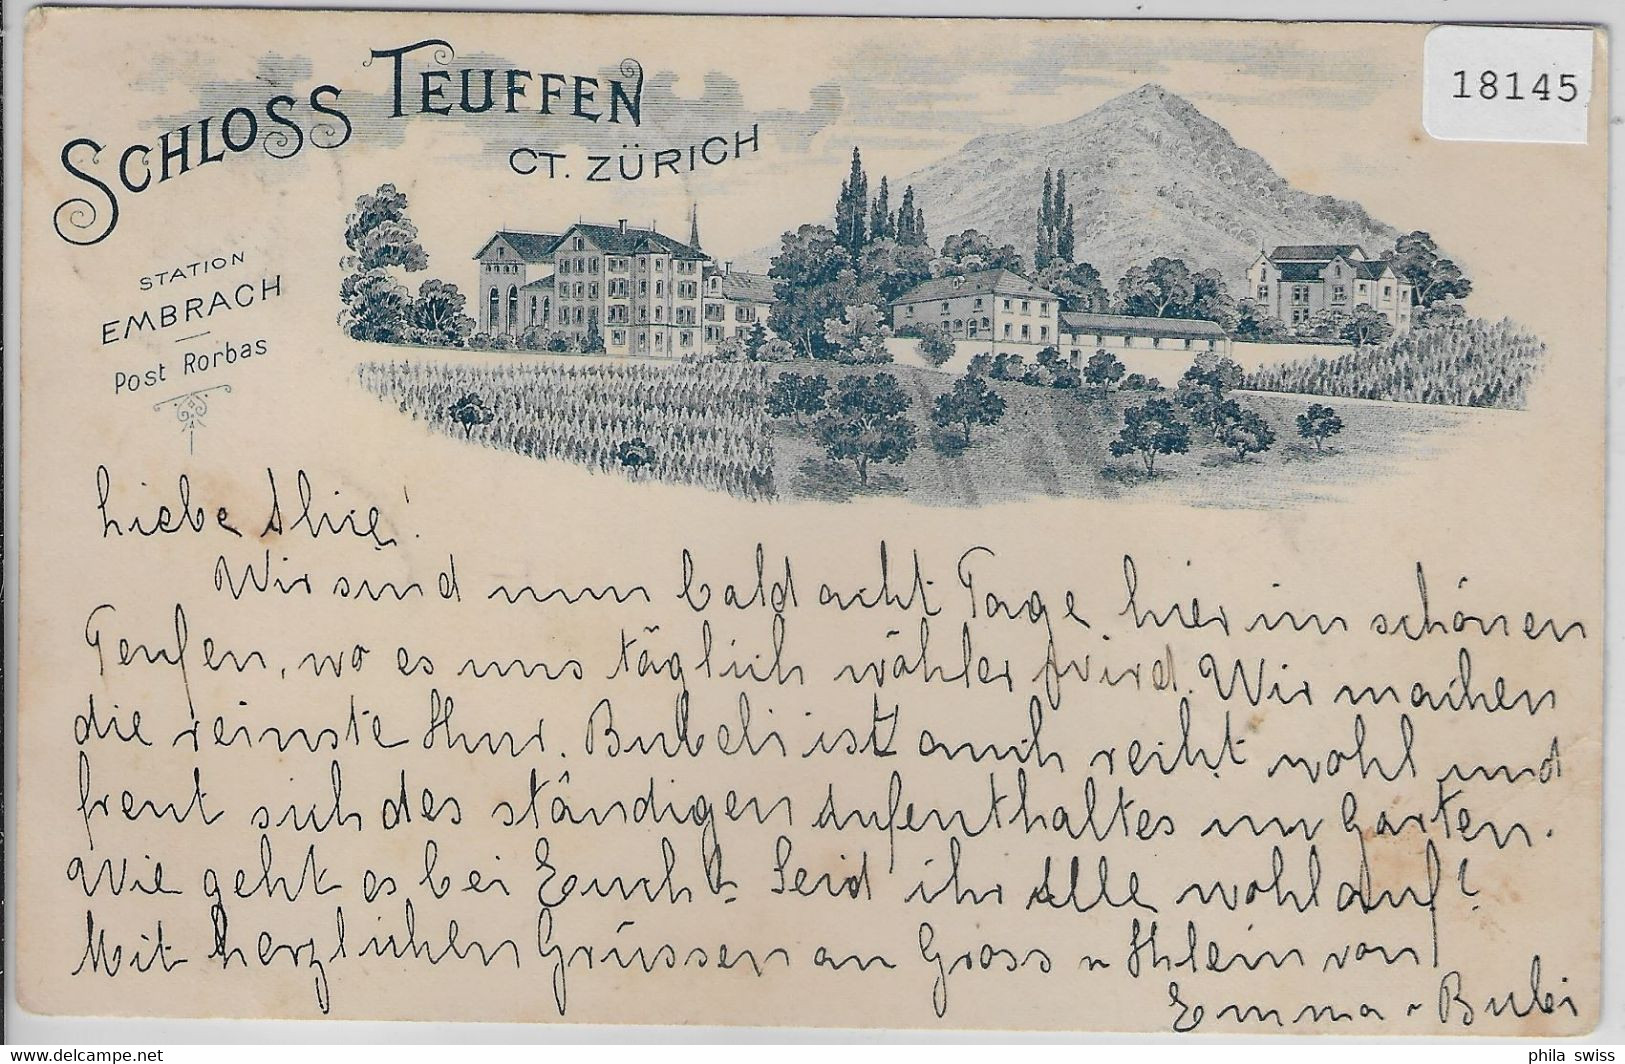 SCHLOSS TEUFFEN
CT. ZÜRICH
18145
STATION
EMBRACH
Post Rorbas
Liebe !
Wir sind nun bald acht Tage hier im schönen
Teufen, wo es uns täglich wöhler wird. Wir machen
die reinste Kur. Bubeli ist auch recht wohl und
freut sich des ständigen Aufenthaltes im Garten.
Wie geht es bei Euch? Seid ihr Alle wohlauf?
Mit herzlichen Grüssen an Gross u Klein von
Emma u Bubi
www.delcampe.net
phila swiss